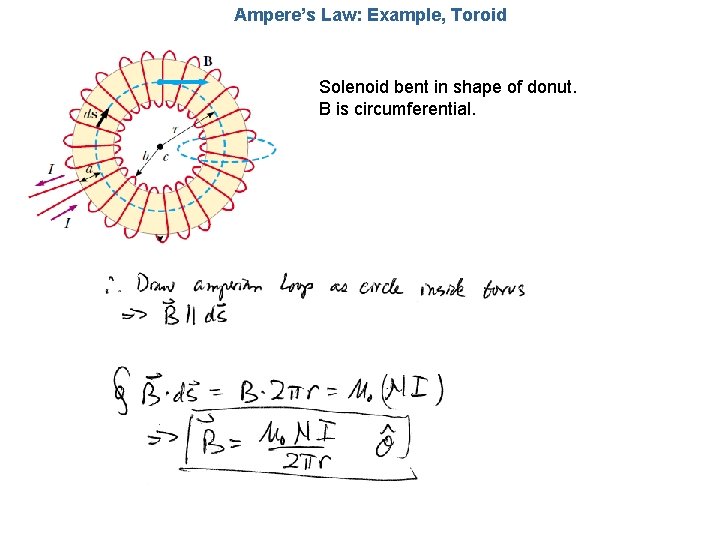 Ampere’s Law: Example, Toroid
Solenoid bent in shape of donut.
B is circumferential.
B
ds
r
b
c
a
I
I
∴ Draw amperian loop as circle inside torus
=> B⃗ || ds⃗
∮ B⃗·ds⃗ = B·2πr = μ₀(NI)
=> B⃗ = μ₀NI / 2πr θ̂